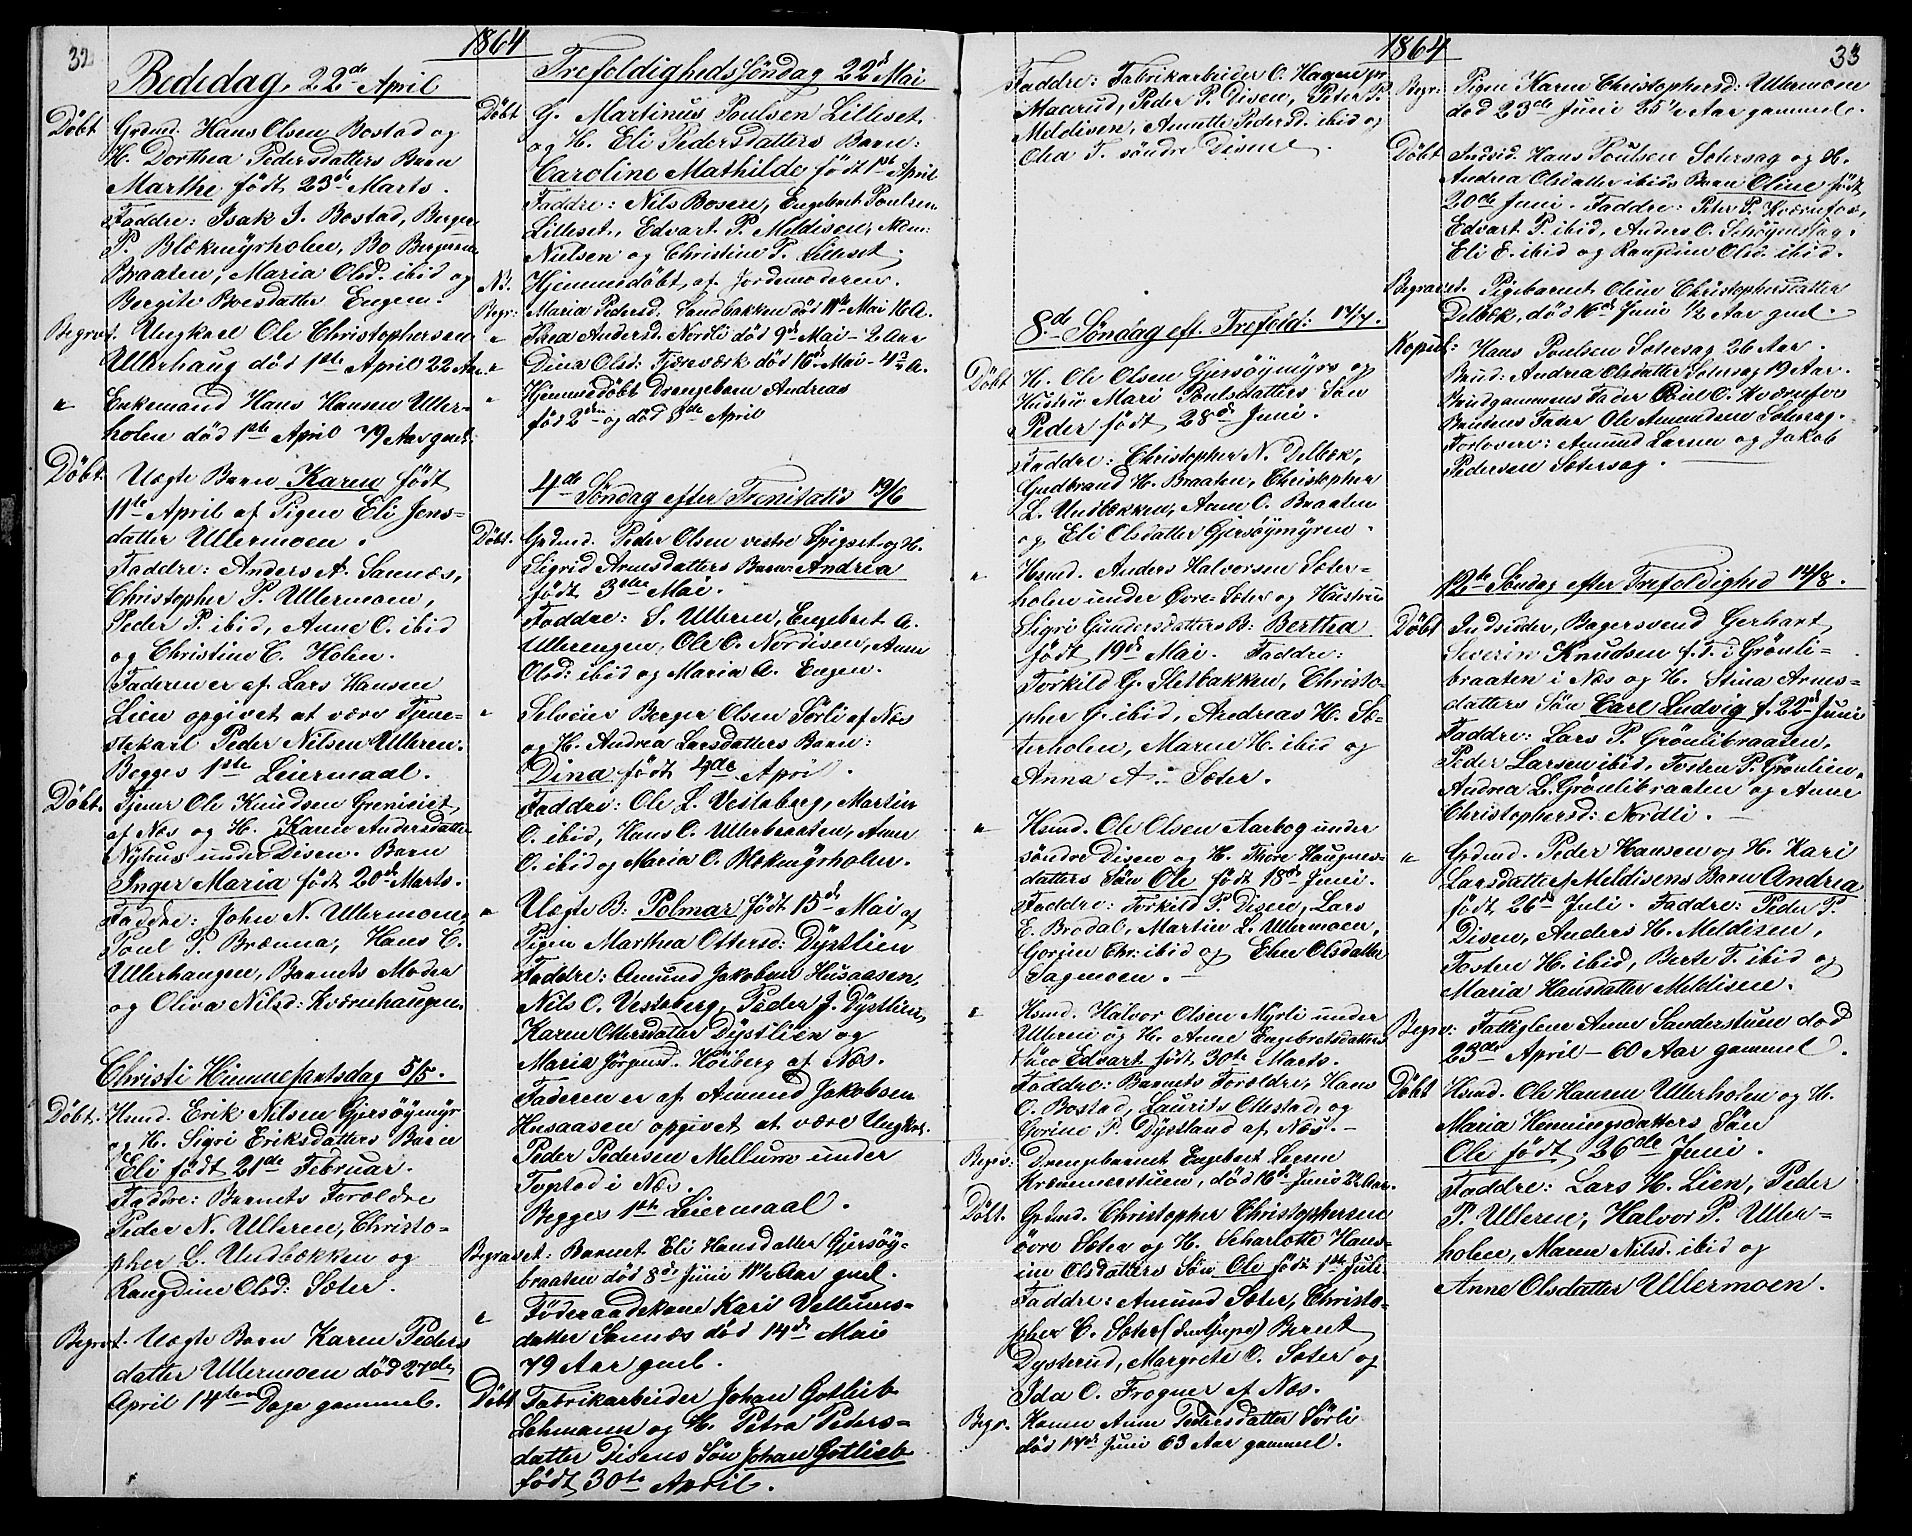 32
1864
Bededag, 22de April
Döbt Grdmd. Hans Olsen Bostad og
H. Dorthea Pedersdatters Barn
Marthe født 23de Marts.
Faddre: Isak I. Bostad, Berger
P. Blekmyrholen, Bo Bergersen
Braaten, Maria Olsd. ibid og
Bergite Boesdatter Engen.
Begrav. Ungkarl Ole Christophersen
Ullerhaug død 1ste April 22 Aar.
" Enkemand Hans Hansen Uller-
holen død 1ste April 79 Aar gml.
Döbt. Uægte Barn Karen født
11te April af Pigen Eli Jens-
datter Ullermoen.
Faddre: Anders A. Sannæs,
Christopher P. Ullermoen,
Peder P. ibid, Anne O. ibid
og Christine C. Holen.
Faderen er af Lars Hansen
Lien opgivet at være Tjene-
stekarl Peder Nilsen Ulleren.
Begges 1ste Leiermaal.
Döbt. Tjener Ole Knudsen
af Næs og H. Karen Andersdatter
Nyhus under Disen. Barn
Inger Maria født 20de Marts.
Faddre: John N. Ullermoen,
Poul P. Brænna, Hans C.
Ullerhaugen, Barnets Moder
og Oliva Nilsd: Kværnhaugen.
Christi Himmelfartsdag 5/5.
Döbt. Hsmd. Erik Nilsen Gjersöymyr
og H. Sigri Eriksdatters Barn
Eli født 21de Februar.
Faddre: Barnets Forældre
Peder N. Ulleren, Christo-
pher L. Undbækken og
Rangdine Olsd: Sæter.
Begrav. Uægte Barn Karen Peders
datter Ullermoen død 27de
April 14ten Dage gammel.
Trefoldigheds Söndag 22de Mai
Döbt G. Martinus Poulsen Lilleset
og H. Eli Pedersdatters Barn:
Caroline Mathilde født 1ste April
Faddre: Nils Bosen, Engebret Poulsen
Lilleset, Edvart P. Meldisen,
Nielsen og Christine P. Lilleset.
N. Hjemmedöbt af Jordemoderen.
Begr: Maria Pedersd. Sandbakken død 11te Mai 16 A.
" Thea Andersd. Nordli død 9de Mai - 2 Aar
" Dina Olsd: død 16de Mai - 4 A.
" Hjemmedöbt Drengebarn Andreas
død 8de April
4de Söndag efter Trenitatis 19/6
Döbt. Grdmd. Peder Olsen vestre Spigset og H.
Sigrid Arnesdatters Barn: Andrea
født 3die Mai.
Faddre: S. Ulleren, Engebret A.
Ullerengen, Ole O. Nordisen, Anne
Olsd: ibid og Maria A. Engen.
" Selveier Berger Olsen Sörli af Næs
og H. Andrea Larsdatters Barn:
Dina født 4de April.
Faddre: Ole L. Vestaberg, Martin
O. ibid, Hans O. Ullerbraaten, Anne
O. ibid og Maria O. Blekmyrholen.
" Uægte B: Polmar født 15de Mai af
Pigen Marthea Ottersd: Dystlien
Faddre: Amund Jakobsen Husaasen,
Nils O. Vestaberg, Peder J. Dystlien,
Karen Ottersdatter Dystlien og
Maria Jörgensd. Höiberg af Næs.
Faderen er af Amund Jakobsen
Husaasen opgivet at være Ungkrl.
Peder Pedersen Mellum under
Topstad i Næs.
Begges 1ste Leiermaal.
Begravet: Barnet Eli Hansdatter Gjersöy-
braaten død 8de Juni 1 1/2 Aar gml.
" Föderaadskone Kari Vellums-
datter Sannæs død 14de Mai
79 Aar gml.
Döbt Fabrikarbeider Johan Gotlieb
Lehmann og H. Petra Peders-
datter Disens Sön Johan Gotlieb
født 30te April.
1864
33
Faddre: Fabrikarbeider O. Hagen
Maarud, Peder P. Disen, Peter P.
Meldisen, Annette Pedersd. ibid og
Olea T. söndre Disen.
8de Söndag eft. Trefold: 17/7.
Döbt H. Ole Olsen Gjersöymyrs og
Hustru Mari Poulsdatters Sön
Peder født 28de Juni.
Faddre: Christopher N. Delbæk,
Gudbrand H. Braaten, Christopher
L. Undbækken, Anne O. Braaten
og Eli Olsdatter Gjersöymyren.
" Hsmd. Anders Halvorsen Sæter-
holen under Övre-Sæter og Hustru
Sigri Gundersdatters B: Bertha
født 19de Mai. Faddre:
Torkild G. Sletbakken, Christo-
pher G. ibid, Andreas H. Sæ-
terholen, Maren H. ibid og
Anna A. Sæter.
" Hsmd. Ole Olsen Aarbog under
söndre Disen og H. Thore Haagnes-
datters Sön Ole født 18de Juni.
Faddre: Torkild P. Disen, Lars
E. Brodal, Martin L. Ullermoen,
Gorgine Chr: ibid og Elen Olsdatter
Sagmoen.
" Hsmd. Halvor Olsen Myrli under
Ulleren og H. Anne Engebretsdatters
Edvart født 30te Marts.
Faddre: Barnets Forældre, Hans
O. Bostad, Laurits Ottestad, og
Gorine P. Dystland af Næs.
Begr: Drengebarnet Engebert Larsen
Kræmmerstuen, død 16de Juni 2 Aar.
Döbt. Grdmd. Christopher Christophersen
övre Sæter og H. Scharlotte Hans-
ine Olsdatters Sön Ole født 1ste Juli
Faddre: Amund Sæter, Christo-
pher C. Sæter (den Yngre) Bernt
Dysterud, Margrete O. Sæter og
Ida O. Frogner af Næs.
Begr. Konen Anne Pedersdatter Sörli
død 14de Juni 63 Aar gammel.
Begr: Pigen Karen Christophersd: Ullermoen
død 23de Juni 25 1/2 Aar gammel.
Döbt Indsid. Hans Poulsen Sætersag og H.
Andrea Olsdatter ibids Barn Oline født
20de Juni. Faddre: Peter P. Kværnfos,
Edvart P. ibid, Anders O. Schöyenssag,
Eli E. ibid og Rangdine Olsd. ibid.
Begravet. Pigebarnet Oline Christophersdatter
Delbæk, død 16de Juni 1/2 Aar gml.
Kopul: Hans Poulsen Sætersag 26 Aar.
Brud: Andrea Olsdatter Sætersag 19 Aar.
Brudgommens Fader Poul O. Kværnfos
Brudens Fader Ole Amundsen Sætersag.
Forlovere: Amund Larsen og Jakob
Pedersen Sætersag.
12te Söndag efter Trefoldighed 14/8.
Döbt Indsidder, Bagersvend Gerhart
Severin Knudsen f.T. i Grönli-
braaten i Næs og H. Stina Arnes-
datters Sön Carl Ludvig f. 22de Juni
Faddre: Lars P. Grönlibraaten,
Peder Larsen ibid, Tosten P. Grönlien,
Andrea L. Grönlibraaten og Anne
Christophersd: Nordli.
" Grdmd. Peder Hansen og H. Kari
Larsdatter Meldisens Barn Andrea
født 26de Juli. Faddre: Peder P.
Disen, Anders H. Meldisen,
Tosten H. ibid, Berte T. ibid og
Maria Hansdatter Meldisen.
Begr: Fattiglem Anne Sanderstuen død
23de April - 60 Aar gammel.
Döbt Hsmd. Ole Hansen Ullerholen og H.
Maria Henningsdatters Sön
Ole født 26de Juni.
Faddre: Lars H. Lien, Peder
P. Ulleren, Halvor P. Uller-
holen, Maren Nilsd. ibid og
Anne Olsdatter Ullermoen.